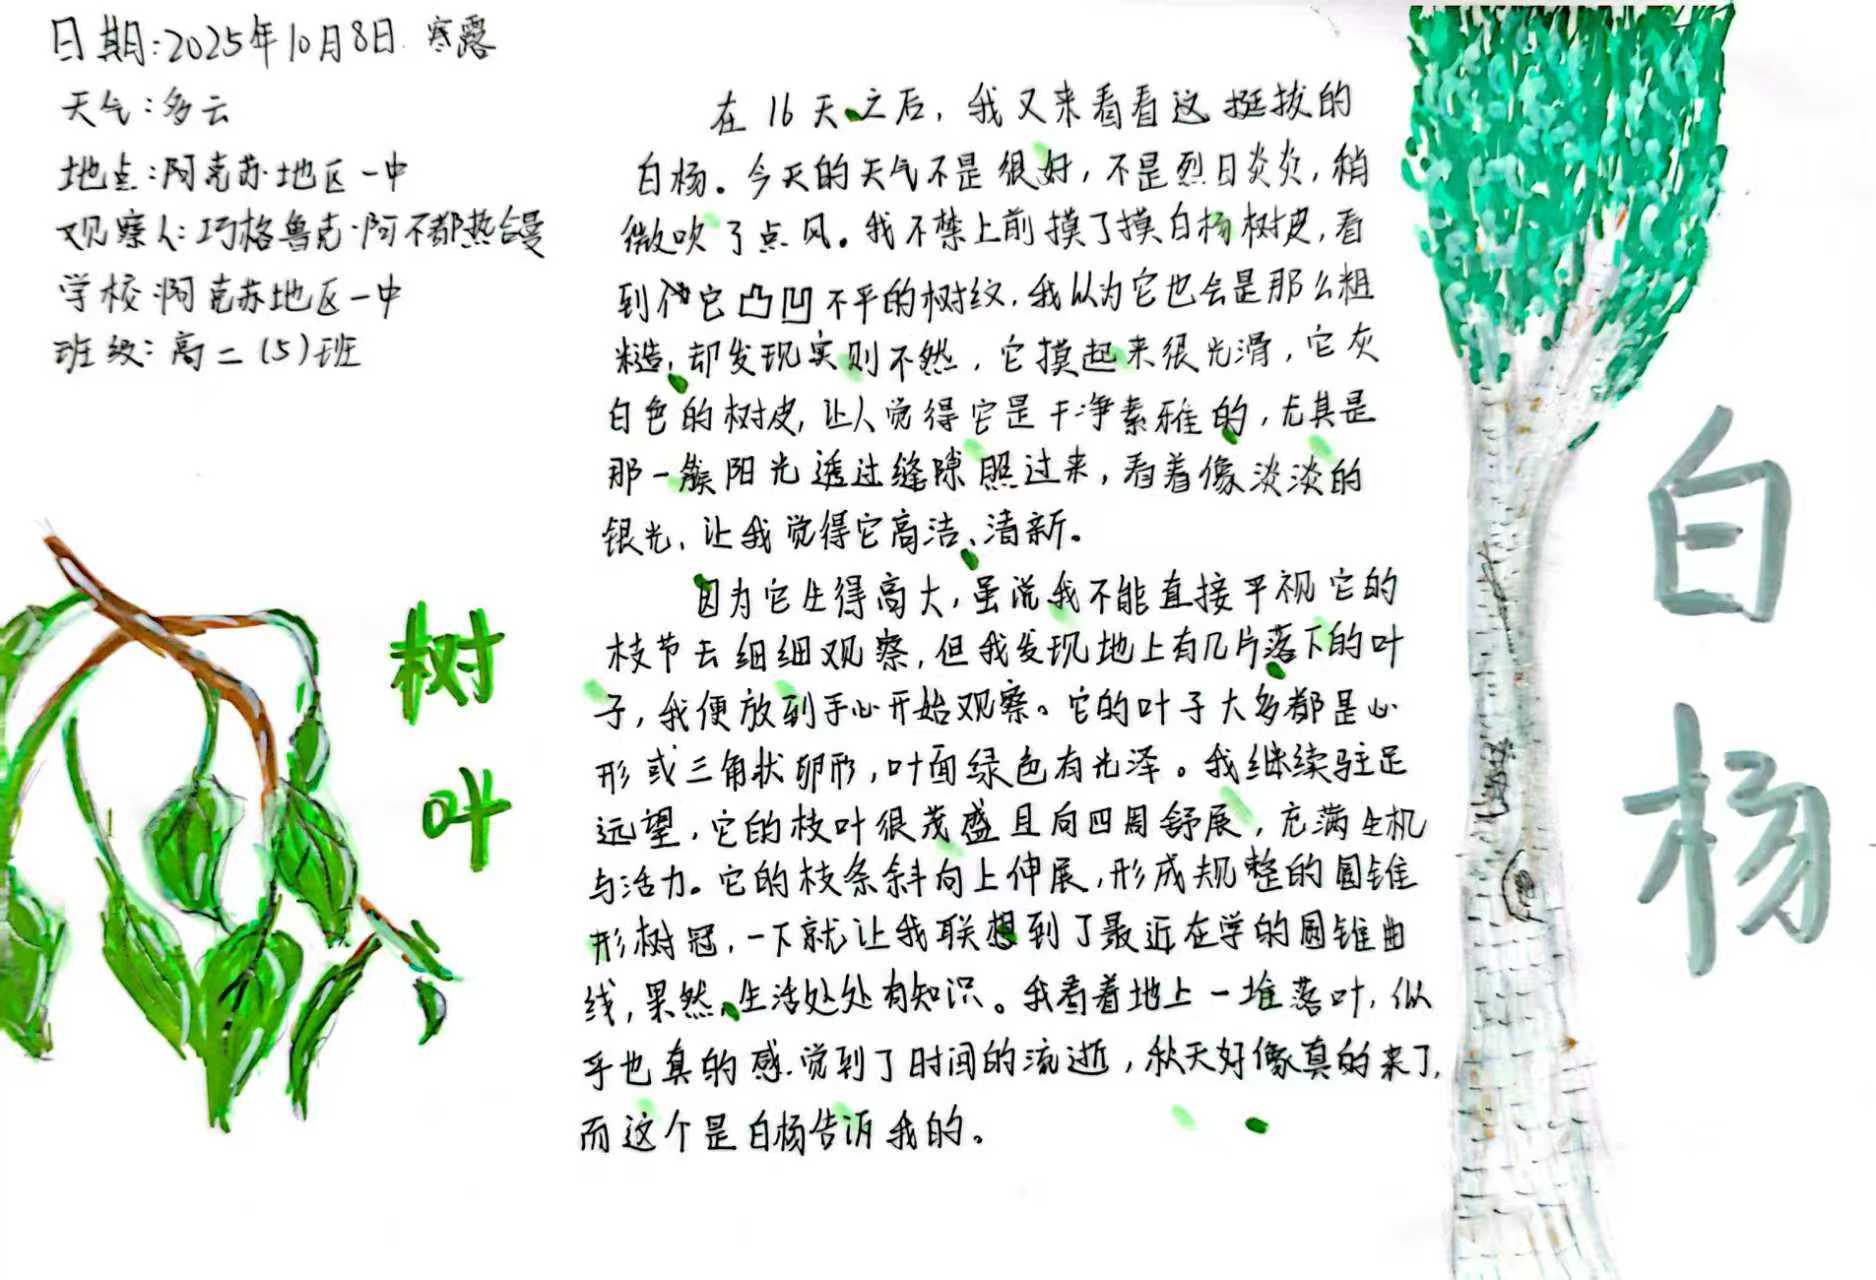 日期:2025年10月8日 寒露
天气:多云
地点:阿克苏地区一中
观察人:巧格鲁克·阿不都热合曼
学校:阿克苏地区一中
班级:高二(5)班
在16天之后,我又来看看这挺拔的
白杨。今天的天气不是很好,不是烈日炎炎,稍
微吹了点风。我不禁上前摸了摸白杨树皮,看
到它凸凹不平的树纹,我以为它也会是那么粗
糙,却发现实则不然,它摸起来很光滑,它灰
白色的树皮,让人觉得它是干净素雅的,尤其是
那一簇阳光透过缝隙照过来,看着像淡淡的
银光,让我觉得它高洁、清新。
因为它生得高大,虽说我不能直接平视它的
枝节去细细观察,但我发现地上有几片落下的叶
子,我便放到手心开始观察。它的叶子大多都是心
形或三角状卵形,叶面绿色有光泽。我继续驻足
远望,它的枝叶很茂盛且向四周舒展,充满生机
与活力。它的枝条斜向上伸展,形成规整的圆锥
形树冠,一下就让我联想到了最近在学的圆锥曲
线,果然,生活处处有知识。我看着地上一堆落叶,似
乎也真的感觉到了时间的流逝,秋天好像真的来了,
而这个是白杨告诉我的。
树叶
白杨